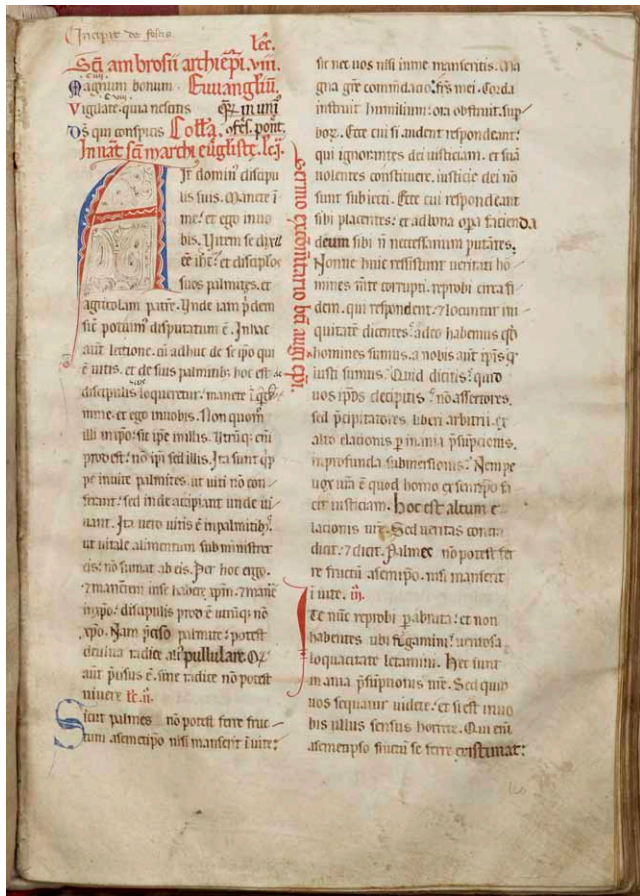 Incipit de festis
lec.
Sci ambrosii archiepi. viii.
Magnum bonum. Euuangliu.
Vigilate. quia nescitis
Ds qui conspicis Collā. ofcl. pont.
In nat sci marchi euglistę. lec.
It domin discipu
lis suis. Manete i
me: et ego in uo
bis. Item se dixit
ee et disciplos
suos palmites. et
agricolam patrē. Vnde iam pdem
sic potium disputatum ē. In hac
aut lectione. cu adhuc de se ipo qui
ē uitis. et de suis palmitib hoc est de
discipulis loqueretur. manete i
in me. et ego in uobis. Non quom
illi in ipo: sic ipe in illis. enī
prodest: no ipi sed illis. Ita sunt qp
pe in uite palmites. ut uiti no con
ferant: sed inde accipiant unde ui
uant. Ita uero uitis ē in palmitib.
ut uitale alimentum subministret
eis: no sumat ab eis. Per hoc ergo.
7 manētem in se habere xpm. 7 manē
in xpo: discipulis prod ē utruq. no
xpo. Nam pciso palmite: potest
de uiua radice ali pullulare. Q
aut pcisus ē. sine radice no potest
uiuere lc. ii.
Sicut palmes no potest ferre fruc
tum a semetipo nisi manserit i uite:
sermo ex cometario bti augi epi.
sic nec uos nisi in me manseritis. Ma
gna grē commdacio. frs mei. Corda
instruit humilium: ora obstruit sup
boz. Ecce cui si audent respondeant:
qui ignorantes dei iusticiam. et suā
uolentes constituere. iusticie dei nō
sunt subiecti. Ecce cui respondeant
sibi placentes: et ad bona opa facienda
deum sibi n necessarium putātes.
Nonne huic resistunt ueritati ho
mines mte corrupti. reprobi circa fi
dem. qui respondent. 7 locuntur ini
quitatē dicentes: a deo habemus qd
homines sumus. a nobis aut ipis q
iusti sumus. Quid dicitis: quid
uos ipos decipitis: no assertores.
sed pcipitatores liberi arbitrii. ex
alto elacionis p inania psumpcionis.
in profunda submersionis. Nempe
uox ura ē quod homo ex semetipo fa
cit iusticiam. Hoc est altum e
lacionis ure. Sed ueritas contra
dicit. 7 dicit. Palmes no potest fer
re fructu a semetipo. nisi manserit
i uite. iii.
Ite nuc reprobi p abruta: et non
habentes ubi figamini: uentosa
loquacitate letamini. Hec sunt
inania psumptionis ure. Sed quid
uos sequatur uidete: et si est in uo
bis ullus sensus horrete. Qui eni
a semetipso fructu se ferre existimat: